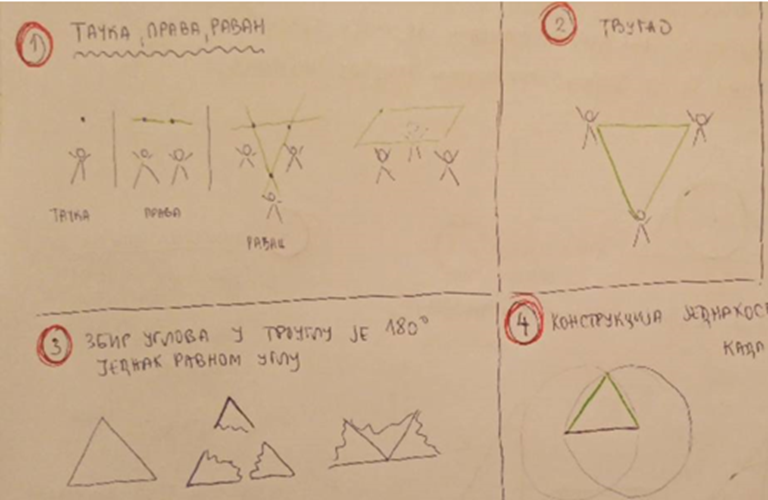 1
ТАЧКА, ПРАВА, РАВАН
ТАЧКА
ПРАВА
РАВАН
2
ТРУГАО
3
ЗБИР УГЛОВА У ТРОУГЛУ ЈЕ 180°
ЈЕДНАК РАВНОМ УГЛУ
4
КОНСТРУКЦИЈА ЈЕДНАКОС
КАДА